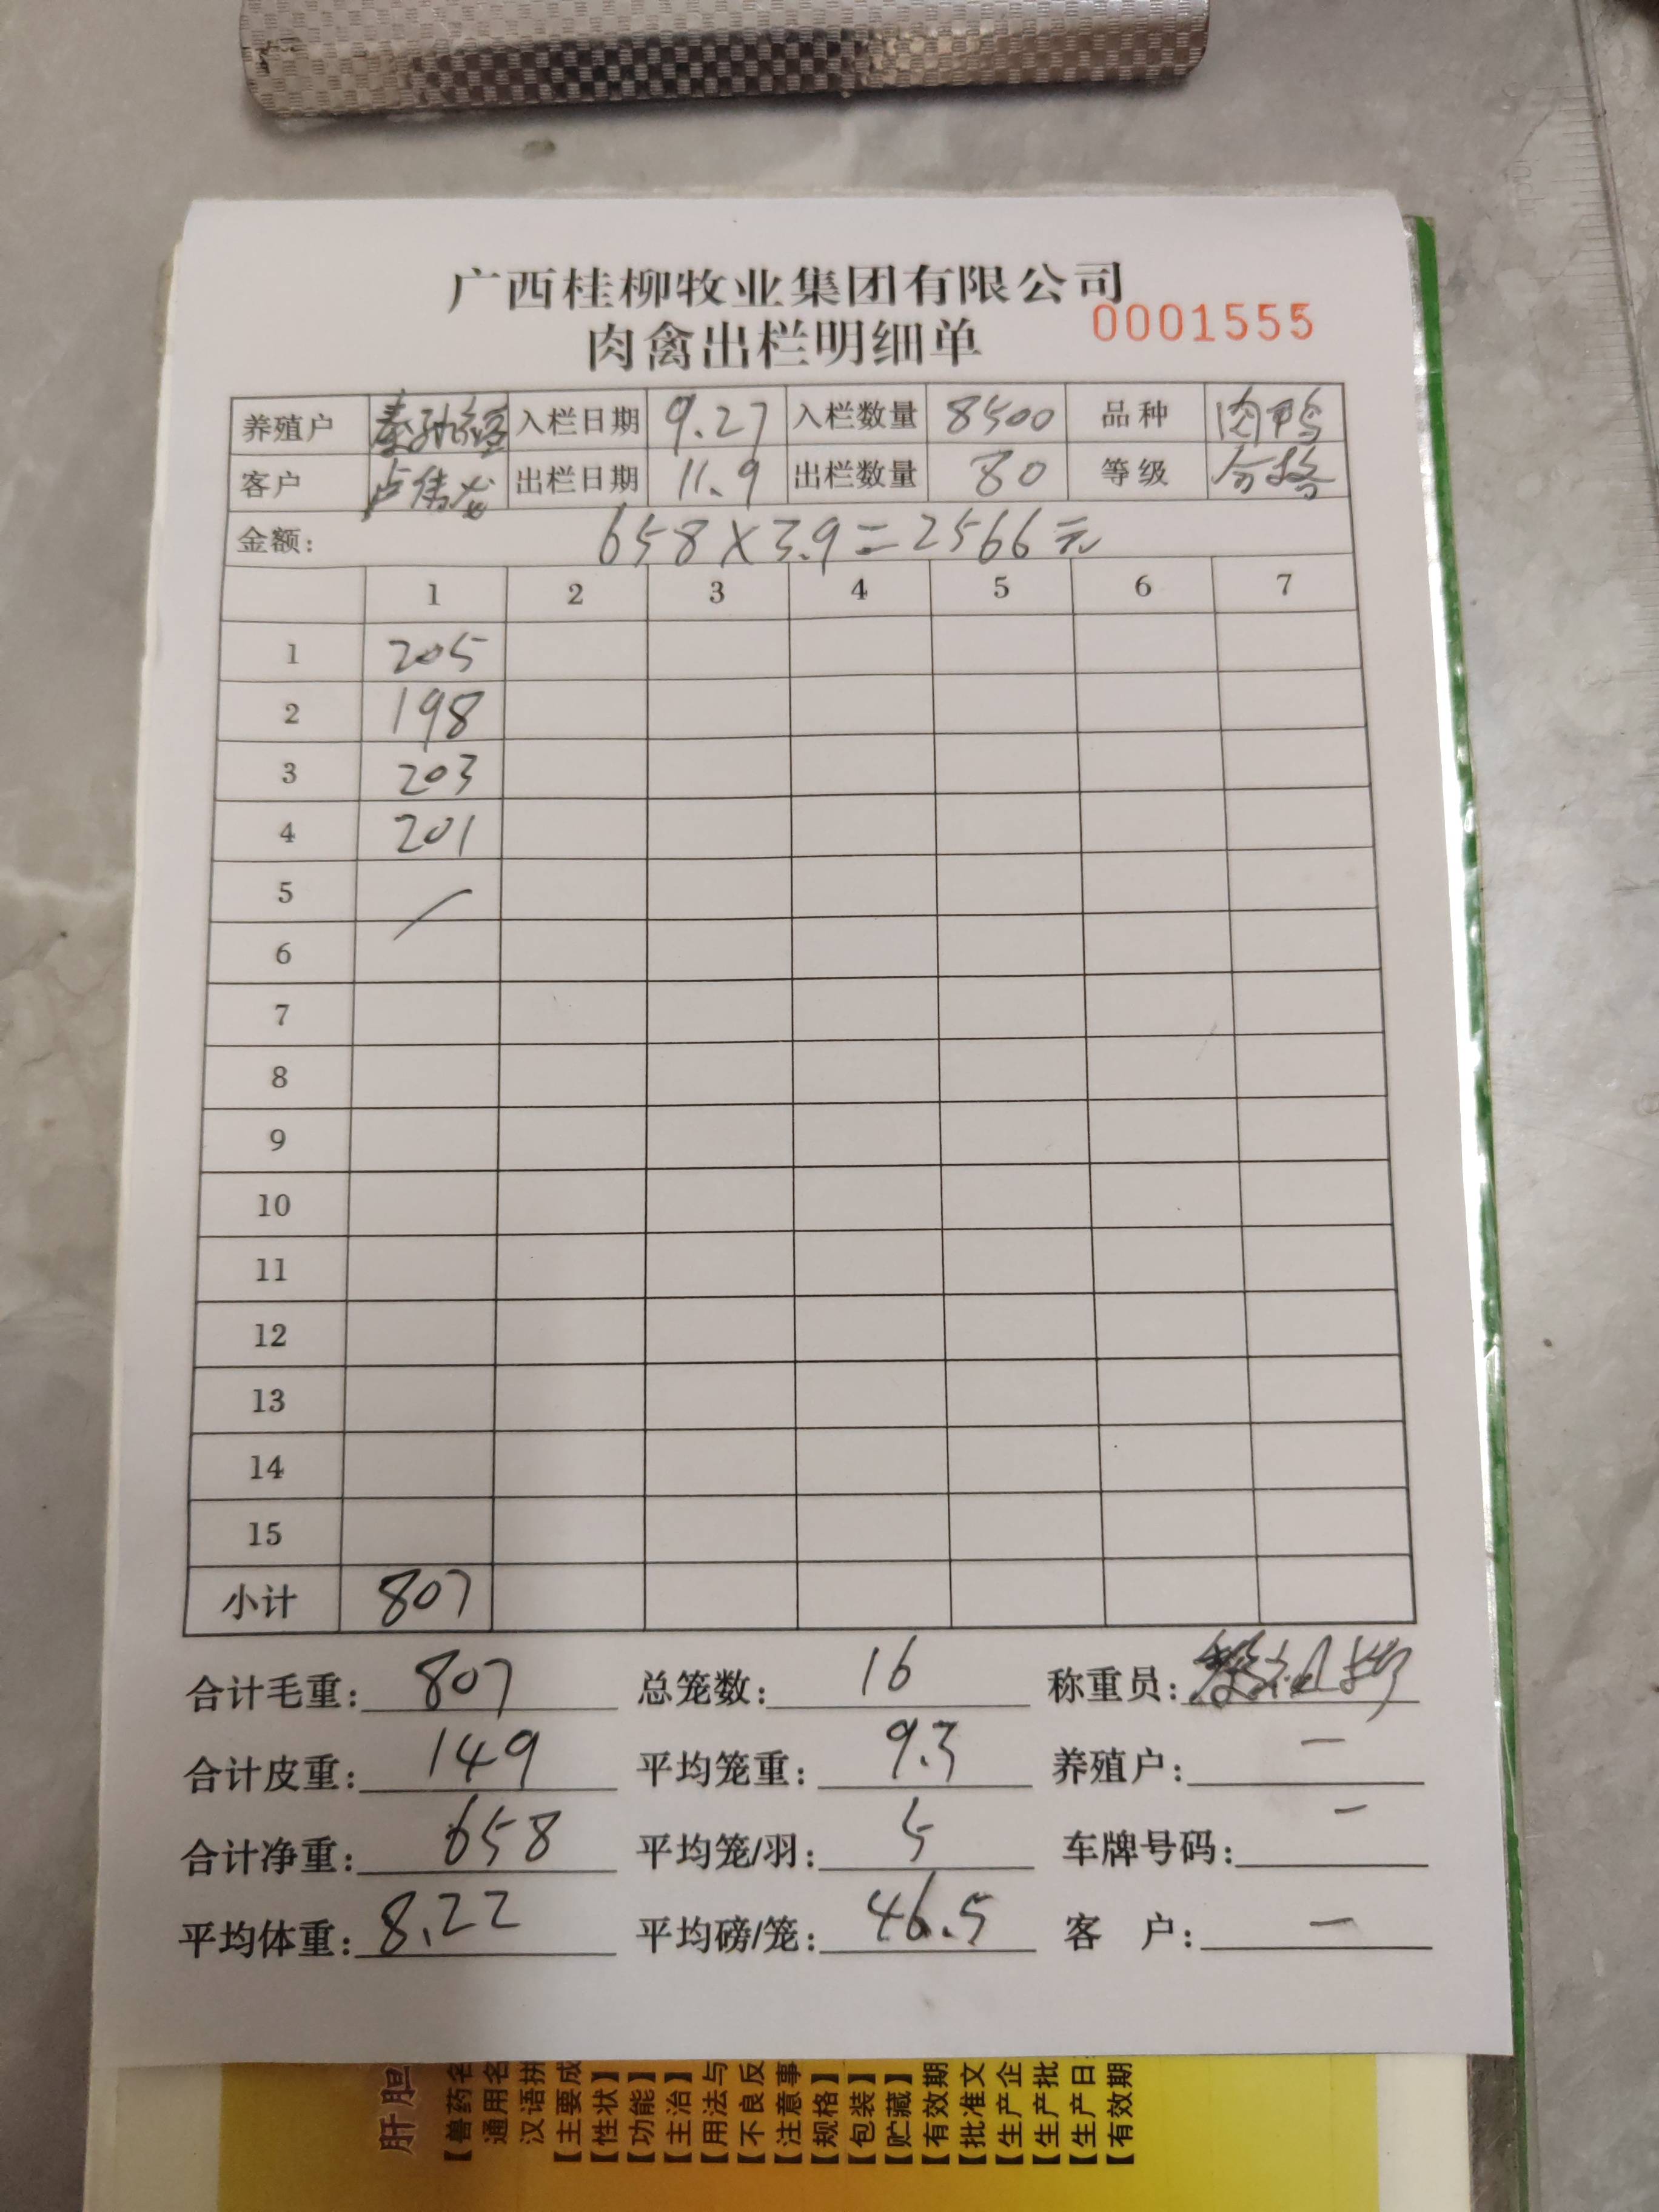 广西桂柳牧业集团有限公司
肉禽出栏明细单 0001555
养殖户 入栏日期 9.27 入栏数量 8500 品种 肉鸭
客户 卢伟龙 出栏日期 11.9 出栏数量 80 等级 合格
金额: 658×3.9=2566元
1 2 3 4 5 6 7
1 205
2 198
3 203
4 201
5
6
7
8
9
10
11
12
13
14
15
小计 807
合计毛重: 807 总笼数: 16 称重员:
合计皮重: 149 平均笼重: 9.3 养殖户: —
合计净重: 658 平均笼/羽: 5 车牌号码: —
平均体重: 8.22 平均磅/笼: 46.5 客 户: —
肝胆
【兽药名
通用名
汉语拼
【主要成
【性状】
【功能】
【主治】
【用法与
【不良反
【注意事
【规格】
【包装】
【贮藏】
【有效期
【批准文
【生产企
【生产批
【生产日
【有效期